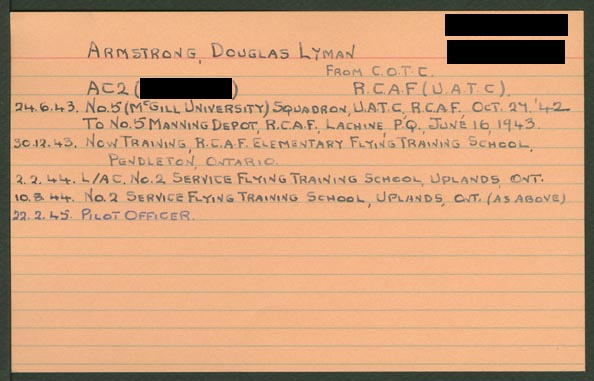 ARMSTRONG, DOUGLAS LYMAN
FROM C.O.T.C.
AC2 ( ) R.C.A.F (U.A.T.C).
24.6.43. NO.5 (MCGILL UNIVERSITY) SQUADRON, U.A.T.C, R.C.A.F. OCT. 27. '42
TO NO.5 MANNING DEPOT, R.C.A.F., LACHINE, P.Q., JUNE 16, 1943.
30.12.43. NOW TRAINING, R.C.A.F. ELEMENTARY FLYING TRAINING SCHOOL,
PENDLETON, ONTARIO.
2.2.44. L/AC. NO.2 SERVICE FLYING TRAINING SCHOOL, UPLANDS, ONT.
10.3.44. NO.2 SERVICE FLYING TRAINING SCHOOL, UPLANDS, ONT. (AS ABOVE)
22.2.45. PILOT OFFICER.